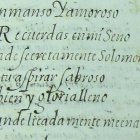 nmanso Yamoroso
Recuerdas en mi Seno
de secretamente Solomor
tu aspirar sabroso
bien y gloria lleno
n delicadamente meena